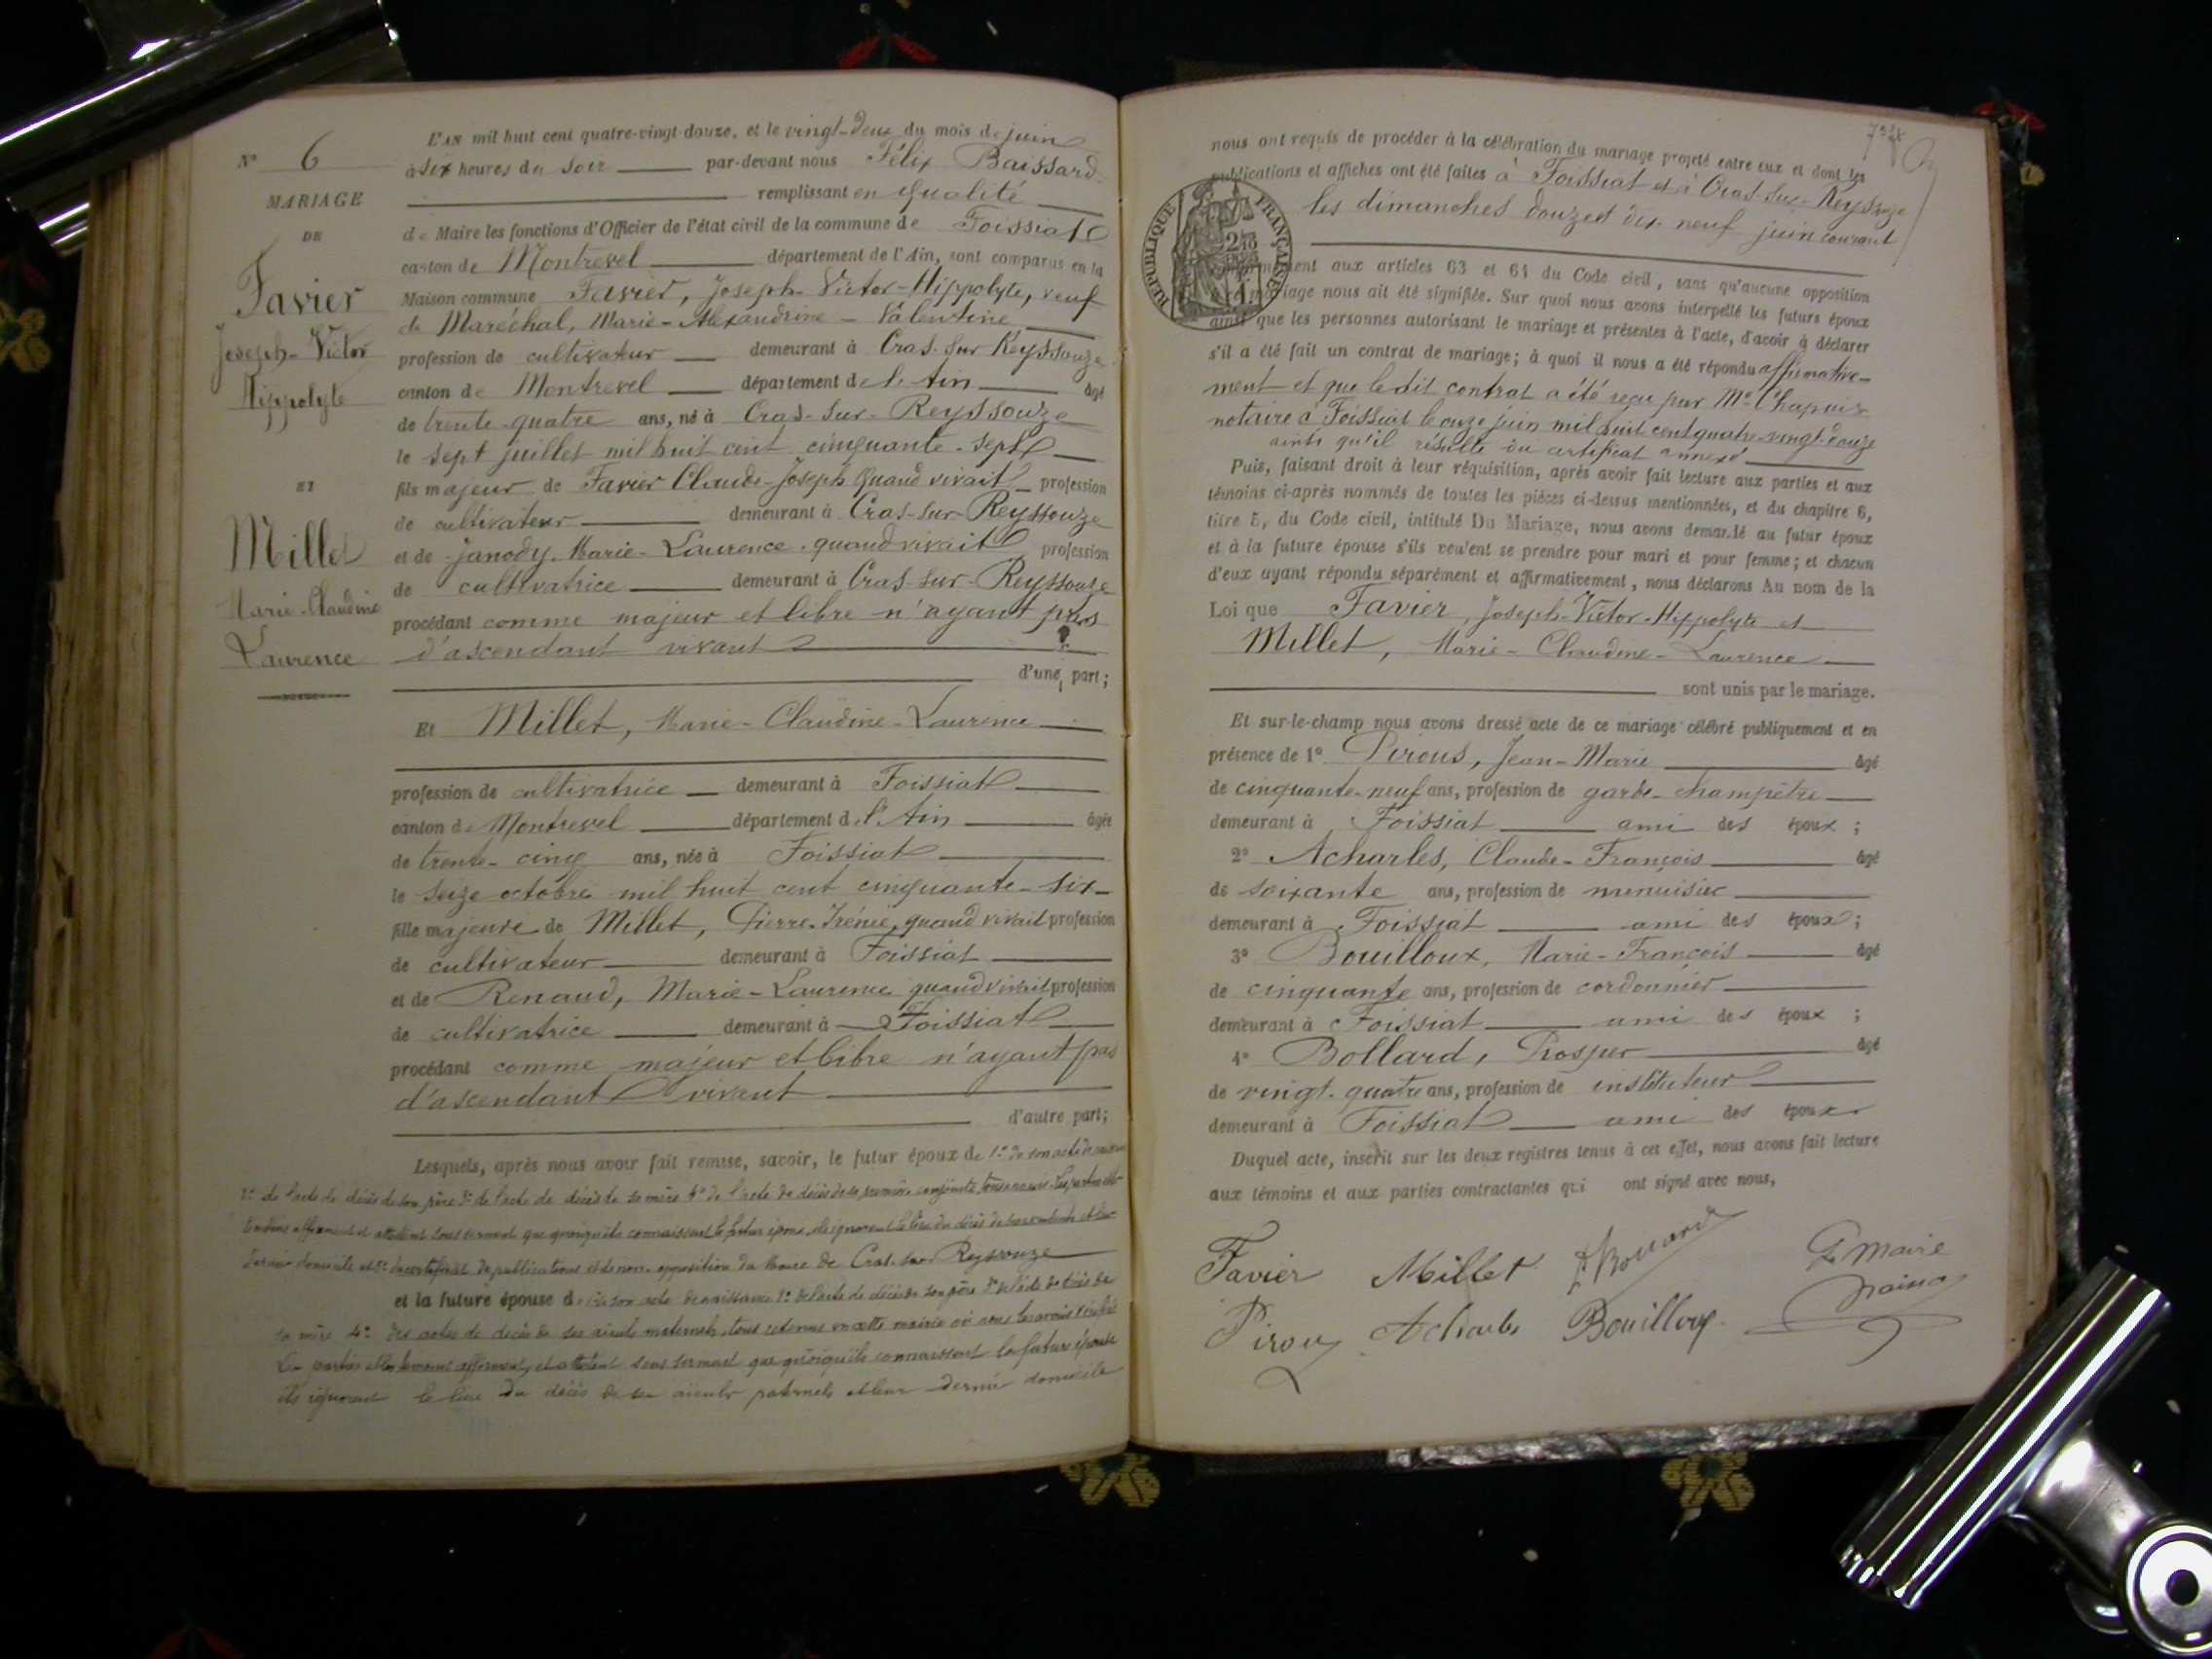 N° 6
MARIAGE
DE
Favier
Joseph-Victor
Hippolyte
ET
Millet
Marie-Claudine
Laurence
L'AN mil huit cent quatre-vingt-douze, et le vingt-deux du mois de juin
à six heures du soir par-devant nous Félix Baissard
remplissant en qualité
de Maire les fonctions d'Officier de l'état civil de la commune de Foissiat
canton de Montrevel département de l'Ain, sont comparus en la
Maison commune Favier, Joseph-Victor-Hippolyte, veuf
de Maréchal, Marie-Alexandrine-Valentine
profession de cultivateur demeurant à Cras-sur-Reyssouze
canton de Montrevel département de l'Ain âgé
de trente-quatre ans, né à Cras-sur-Reyssouze
le sept juillet mil huit cent cinquante-sept
fils majeur de Favier Claude-Joseph quand vivait profession
de cultivateur demeurant à Cras-sur-Reyssouze
et de Janody, Marie-Laurence, quand vivait profession
de cultivatrice demeurant à Cras-sur-Reyssouze
procédant comme majeur et libre n'ayant pas
d'ascendant vivant
d'une part;
Et Millet, Marie-Claudine-Laurence
profession de cultivatrice demeurant à Foissiat
canton de Montrevel département de l'Ain âgée
de trente-cinq ans, née à Foissiat
le seize octobre mil huit cent cinquante-six
fille majeure de Millet, Pierre-Irénée, quand vivait profession
de cultivateur demeurant à Foissiat
et de Renaud, Marie-Laurence quand vivait profession
de cultivatrice demeurant à Foissiat
procédant comme majeur et libre n'ayant pas
d'ascendant vivant
d'autre part;
Lesquels, après nous avoir fait remise, savoir, le futur époux de 1° de son acte de naissance
2° de l'acte de décès de son père 3° de l'acte de décès de sa mère 4° de l'acte de décès de sa première conjointe, Les parties et les
témoins affirment et attestent sous serment que quoiqu'ils connaissent le futur époux, ils ignorent le lieu du décès de ses et leur
dernier domicile et 5° du certificat de publications et de non-opposition du Maire de Cras-sur-Reyssouze
et la future épouse de 1° de son acte de naissance 2° de l'acte de décès de son père 3° de l'acte de décès de
sa mère 4° des actes de décès de ses aïeuls maternels, tous retenus en cette mairie où nous les avons vérifiés
Les parties et les témoins affirment et attestent sous serment que quoiqu'ils connaissent la future épouse
ils ignorent le lieu du décès de ses aïeuls paternels et leur dernier domicile
nous ont requis de procéder à la célébration du mariage projeté entre eux et dont les
publications et affiches ont été faites à Foissiat et à Cras-sur-Reyssouze
les dimanches douze et dix-neuf juin courant
RÉPUBLIQUE FRANÇAISE
aux articles 63 et 64 du Code civil, sans qu'aucune opposition
mariage nous ait été signifiée. Sur quoi nous avons interpellé les futurs époux
ainsi que les personnes autorisant le mariage et présentes à l'acte, d'avoir à déclarer
s'il a été fait un contrat de mariage; à quoi il nous a été répondu affirmative-
ment et que ledit contrat a été reçu par Me Chapuis
notaire à Foissiat le onze juin mil huit cent quatre-vingt-douze
ainsi qu'il résulte du certificat annexé
Puis, faisant droit à leur réquisition, après avoir fait lecture aux parties et aux
témoins ci-après nommés de toutes les pièces ci-dessus mentionnées, et du chapitre 6,
titre 5, du Code civil, intitulé Du Mariage, nous avons demandé au futur époux
et à la future épouse s'ils veulent se prendre pour mari et pour femme; et chacun
d'eux ayant répondu séparément et affirmativement, nous déclarons Au nom de la
Loi que Favier, Joseph-Victor-Hippolyte et
Millet, Marie-Claudine-Laurence
sont unis par le mariage.
Et sur-le-champ nous avons dressé acte de ce mariage célébré publiquement et en
présence de 1° Pirous, Jean-Marie âgé
de cinquante-neuf ans, profession de garde-champêtre
demeurant à Foissiat ami des époux;
2° Acharles, Claude-François âgé
de soixante ans, profession de menuisier
demeurant à Foissiat ami des époux;
3° Bouilloux, Marie-François âgé
de cinquante ans, profession de cordonnier
demeurant à Foissiat ami des époux;
4° Bollard, Prosper âgé
de vingt-quatre ans, profession de instituteur
demeurant à Foissiat ami des époux
Duquel acte, inscrit sur les deux registres tenus à cet effet, nous avons fait lecture
aux témoins et aux parties contractantes qui ont signé avec nous,
Favier Millet Bollard Le Maire
Pirous Acharles Bouilloux